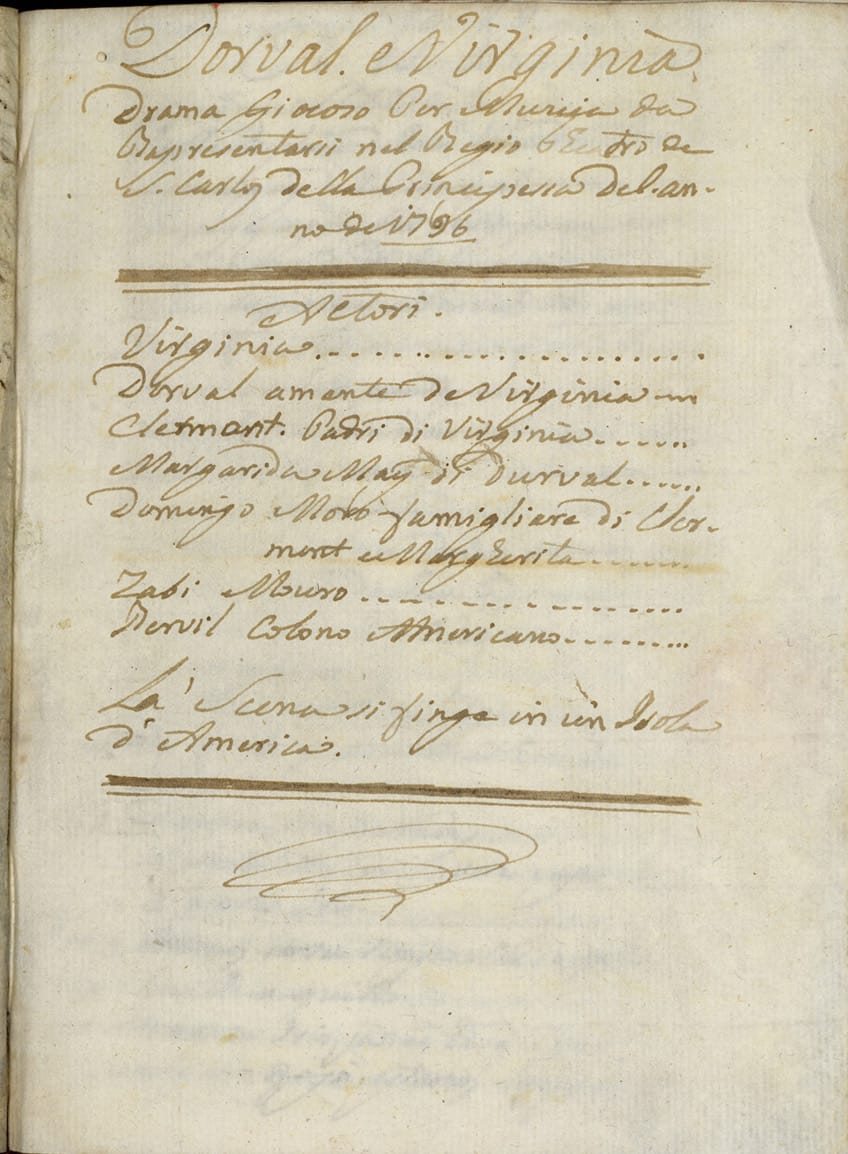 Dorval. e Virginia.
Drama Giocoso Per Musica da
Rapresentarsi nel Regio Teatro de
S. Carlos della Principessa del. an-
no de 1796
Actori.
Virginia......................
Dorval amante de Virginia...
Clermont. Padri di Virginia......
Margarida May di Durval......
Domingo Moro famigliare di Cler-
mont e Margherita.......
Zabi Mouro..................
Dervil Colono Americano.........
La' Scena si finge in un Isola
d'America.